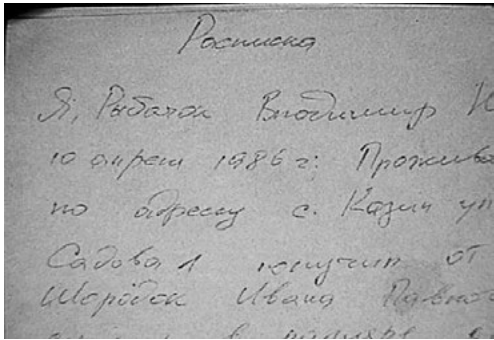 Расписка
Я, Рыбачок Владимир И
10 апреля 1986 г. Прожива
по адресу с. Казин ул
Садова 1 получил от
Шородок Ивана Павло
в размере